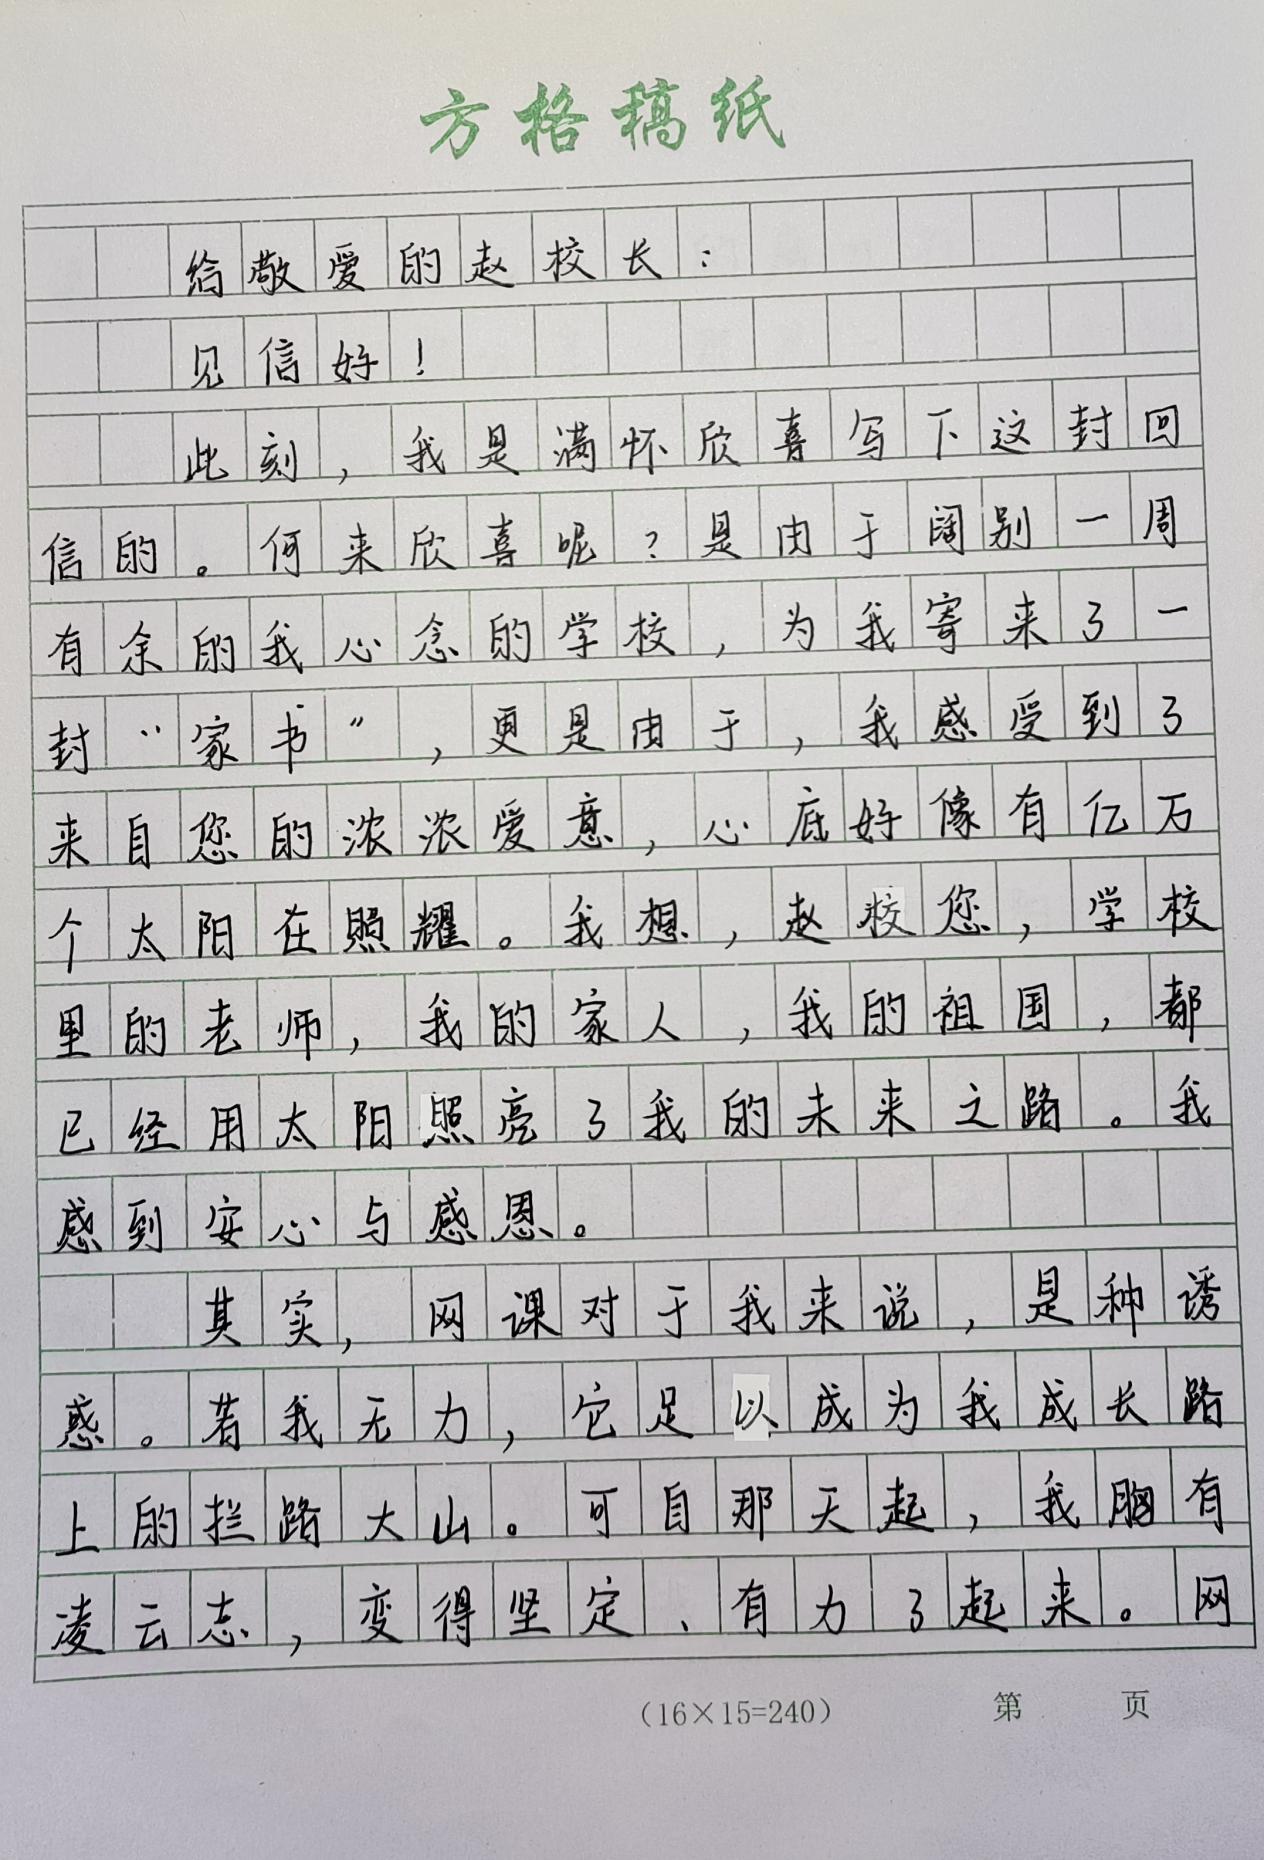 方格稿纸
给敬爱的赵校长：
见信好！
此刻，我是满怀欣喜写下这封回
信的。何来欣喜呢？是由于阔别一周
有余的我心念的学校，为我寄来了一
封“家书”，更是由于，我感受到了
来自您的浓浓爱意，心底好像有亿万
个太阳在照耀。我想，赵校您，学校
里的老师，我的家人，我的祖国，都
已经用太阳照亮了我的未来之路。我
感到安心与感恩。
其实，网课对于我来说，是种诱
惑。若我无力，它足以成为我成长路
上的拦路大山。可自那天起，我胸有
凌云志，变得坚定、有力了起来。网
（16×15=240） 第 页